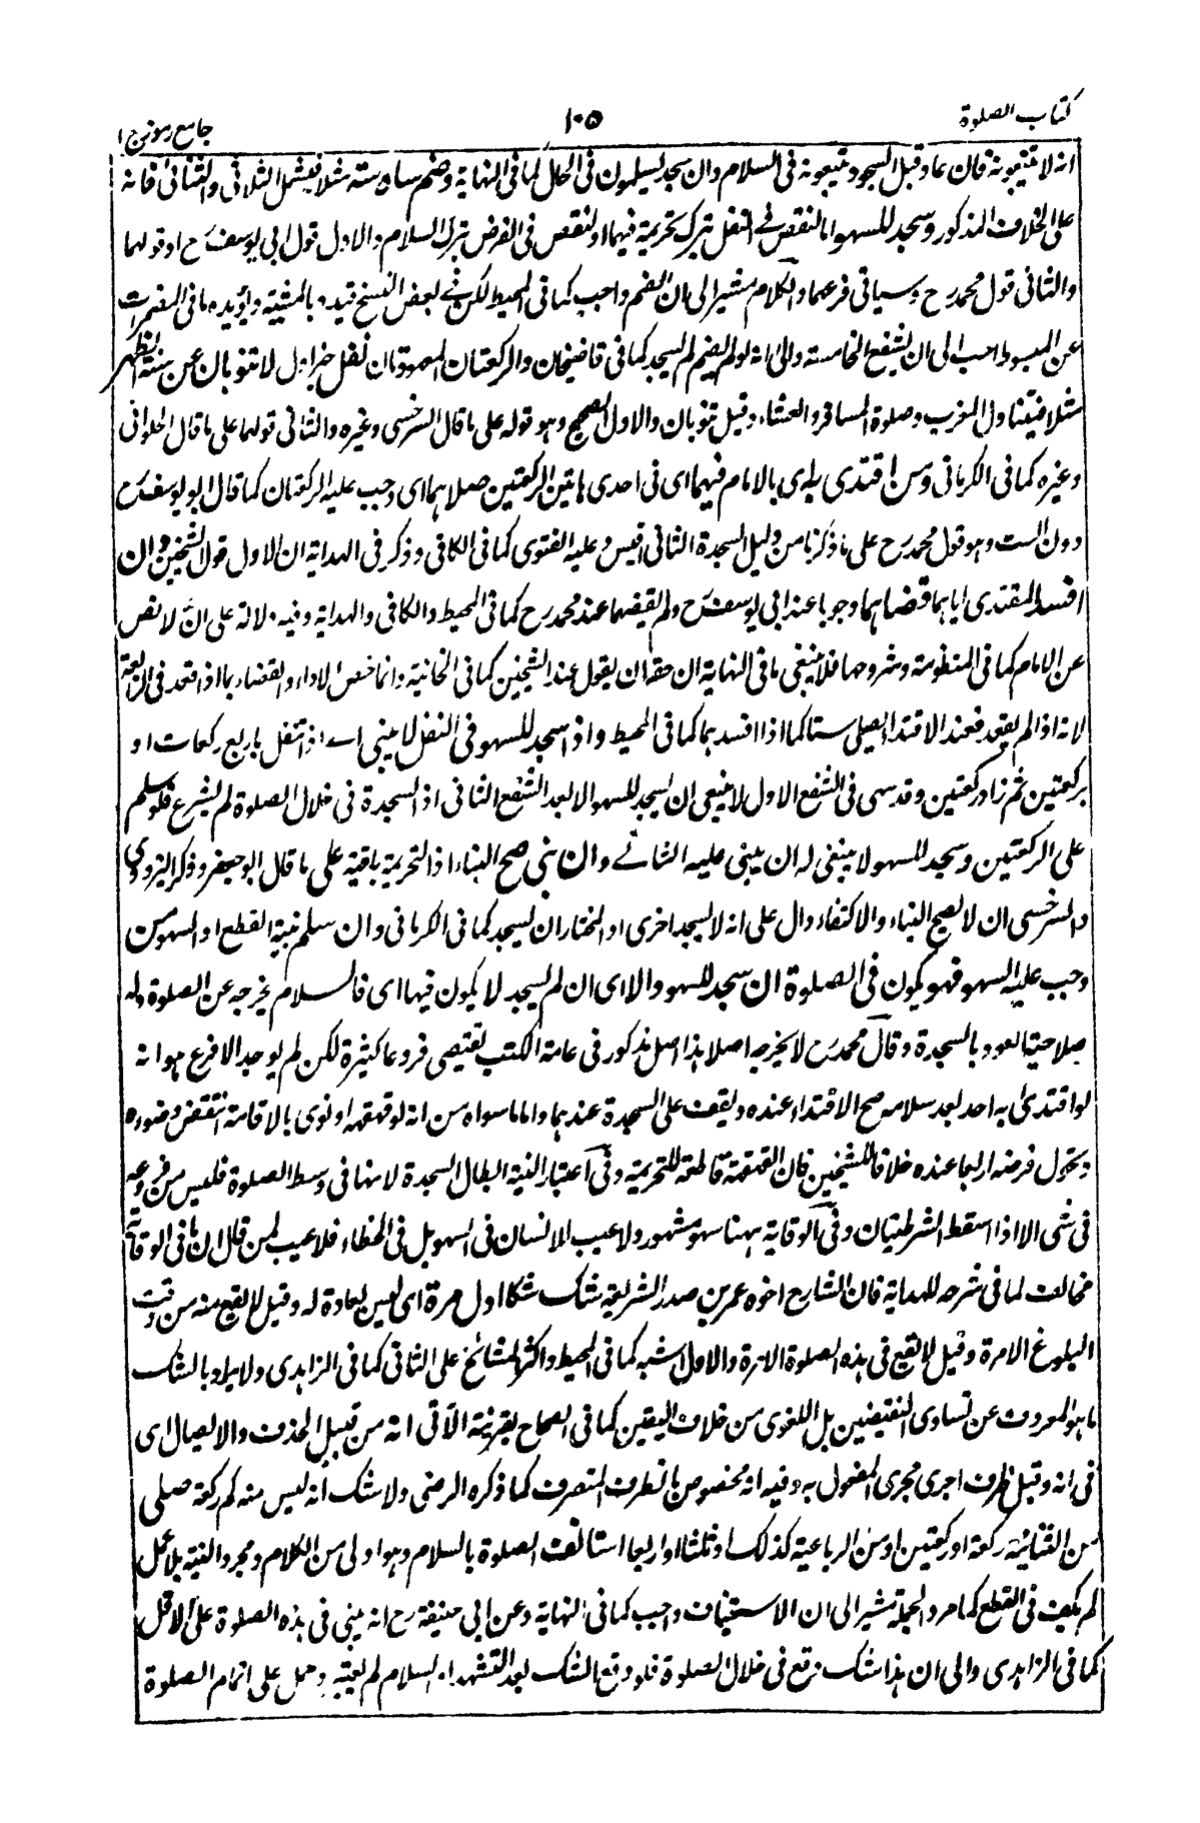 كتاب الصلوة
١٠٥
جامع رموز ج ١
انه لا يتبعونه فان عاد قبل السجود يتبعونه فى السلام وان سجد يسلمون فى الحال كما فى النهاية وضم سادسته مثلا فيشمل الثلاثى والثنائى فانه
على الخلاف المذكور وسجد للسهو اما لنقص فى النفل بترك تحريمة فيهما او لنقص فى الفرض بترك السلام والاول قول ابى يوسف رح او قولهما
والثانى قول محمد رح وسياتى فرعهما والكلام مشير الى ان الضم واجب كما فى المحيط لكن فى بعض النسخ قيده بالمشية ويؤيده ما فى المضمرات
عن المبسوط احب الى ان يشفع الخامسة والى انه لو لم يضم لم يسجد كما فى قاضيخان والركعتان نفل لا تنوبان عن سنة الظهر
مثلا فيتناول المغرب وصلوة المسافر والعشاء وقيل تنوبان والاول الصحيح وهو قوله على ما قال السرخسى وغيره والثانى قولهما على ما قال الحلوانى
وغيره كما فى الكرمانى ومن اقتدى به اى بالامام فيهما اى فى احدى هاتين الركعتين صلاهما اى وجب عليه الركعتان كما قال ابو يوسف رح
دون الست وهو قول محمد رح على ما ذكرنا من دليل السجدة الثانى اقيس وعليه الفتوى كما فى الكافى وذكر فى الهداية ان الاول قول الشيخين وان
افسد المقتدى اياهما قضاهما وجوبا عند ابى يوسف رح ولم يقضهما عند محمد رح كما فى المحيط والكافى والهداية وفيه دلالة على ان لا نص
عن الامام كما فى المنظومة وشروحها فلا ينبغى ما فى النهاية ان حقه ان يقول عند الشيخين كما فى الخانية وانما خص الاداء والقضاء بما اذا قعد فى الرابعة
لانه اذا لم يقعد فعند الاقتداء يصلى ستا كما اذا افسدهما كما فى المحيط واذا سجد للسهو فى النفل لا يبنى اى اذا تنفل باربع ركعات او
بركعتين ثم زاد ركعتين وقد سهى فى الشفع الاول لا ينبغى ان يسجد للسهو الا بعد الشفع الثانى اذ السجدة فى خلال الصلوة لم يشرع فلو سلم
على الركعتين وسجد للسهو لا ينبغى له ان يبنى عليه الثانى وان بنى صح البناء اذ التحريمة باقية على ما قال ابو جعفر وذكر البزدوى
والسرخسى ان لا يصح البناء والاكتفاء دال على انه لا يسجد اخرى او المختار ان يسجد كما فى الكرمانى وان سلم نية القطع او السهو من
وجب عليه السهو فهو يكون فى الصلوة ان سجد للسهو والا اى ان لم يسجد لا يكون فيها اى فالسلام يخرجه عن الصلوة وله
صلاحية العود بالسجدة وقال محمد رح لا يخرجه اصلا هذا اصل مذكور فى عامة الكتب تقتضى فروعا كثيرة لكن لم يوجد الا فرع هو انه
لو اقتدى به احد بعد سلامه صح الاقتداء عنده ويقف على السجدة عندهما واما ما سواه من انه لو قهقه او نوى بالاقامة انتقض وضوءه
ويتحول فرضه اربعا عنده خلافا للشيخين فان القهقهة قاطعة للتحريمة وفى اعتبار النية ابطال السجدة لانها فى وسط الصلوة فليس من فروعه
فى شى الا اذا اسقط الشرطيتان وفى الوقاية ههنا سهو مشهور ولا عيب الانسان فى السهو بل فى الخطاء فلا عيب لمن قال ان ما فى الوقاية
مخالف لما فى شرحه للهداية فان الشارح اخوه عمر بن صدر الشريعة شك شكا اول مرة اى ليس بعادة له وقيل لم يقع منه من وقت
البلوغ الا مرة وقيل لم يقع فى هذه الصلوة الا مرة والاول اشبه كما فى المحيط واكثر المشائخ على الثانى كما فى الزاهدى ولا يراد بالشك
ما هو المعروف عن تساوى النقيضين بل اللغوى من خلاف اليقين كما فى الصحاح بقرينة الآتى انه من قبيل الحذف والايصال اى
فى انه وقيل ظرف اجرى مجرى المفعول به وفيه انه مخصوص بالظرف المتصرف كما ذكره الرضى ولا شك انه ليس منه كم ركعة صلى
من الثنائية ركعة او ركعتين او من الرباعية كذلك او ثلثا او اربعا استانف الصلوة بالسلام وهو اولى من الكلام ومجرد النية بلا عمل
لم يكف فى القطع كما مر والجملة مشير الى ان الاستيناف واجب كما فى النهاية وعن ابى حنيفة رح انه يبنى فى هذه الصلوة على الاقل
كما فى الزاهدى والى ان هذا شك وقع فى خلال الصلوة فلو وقع الشك بعد التشهد او السلام لم يعتبر وحمل على اتمام الصلوة